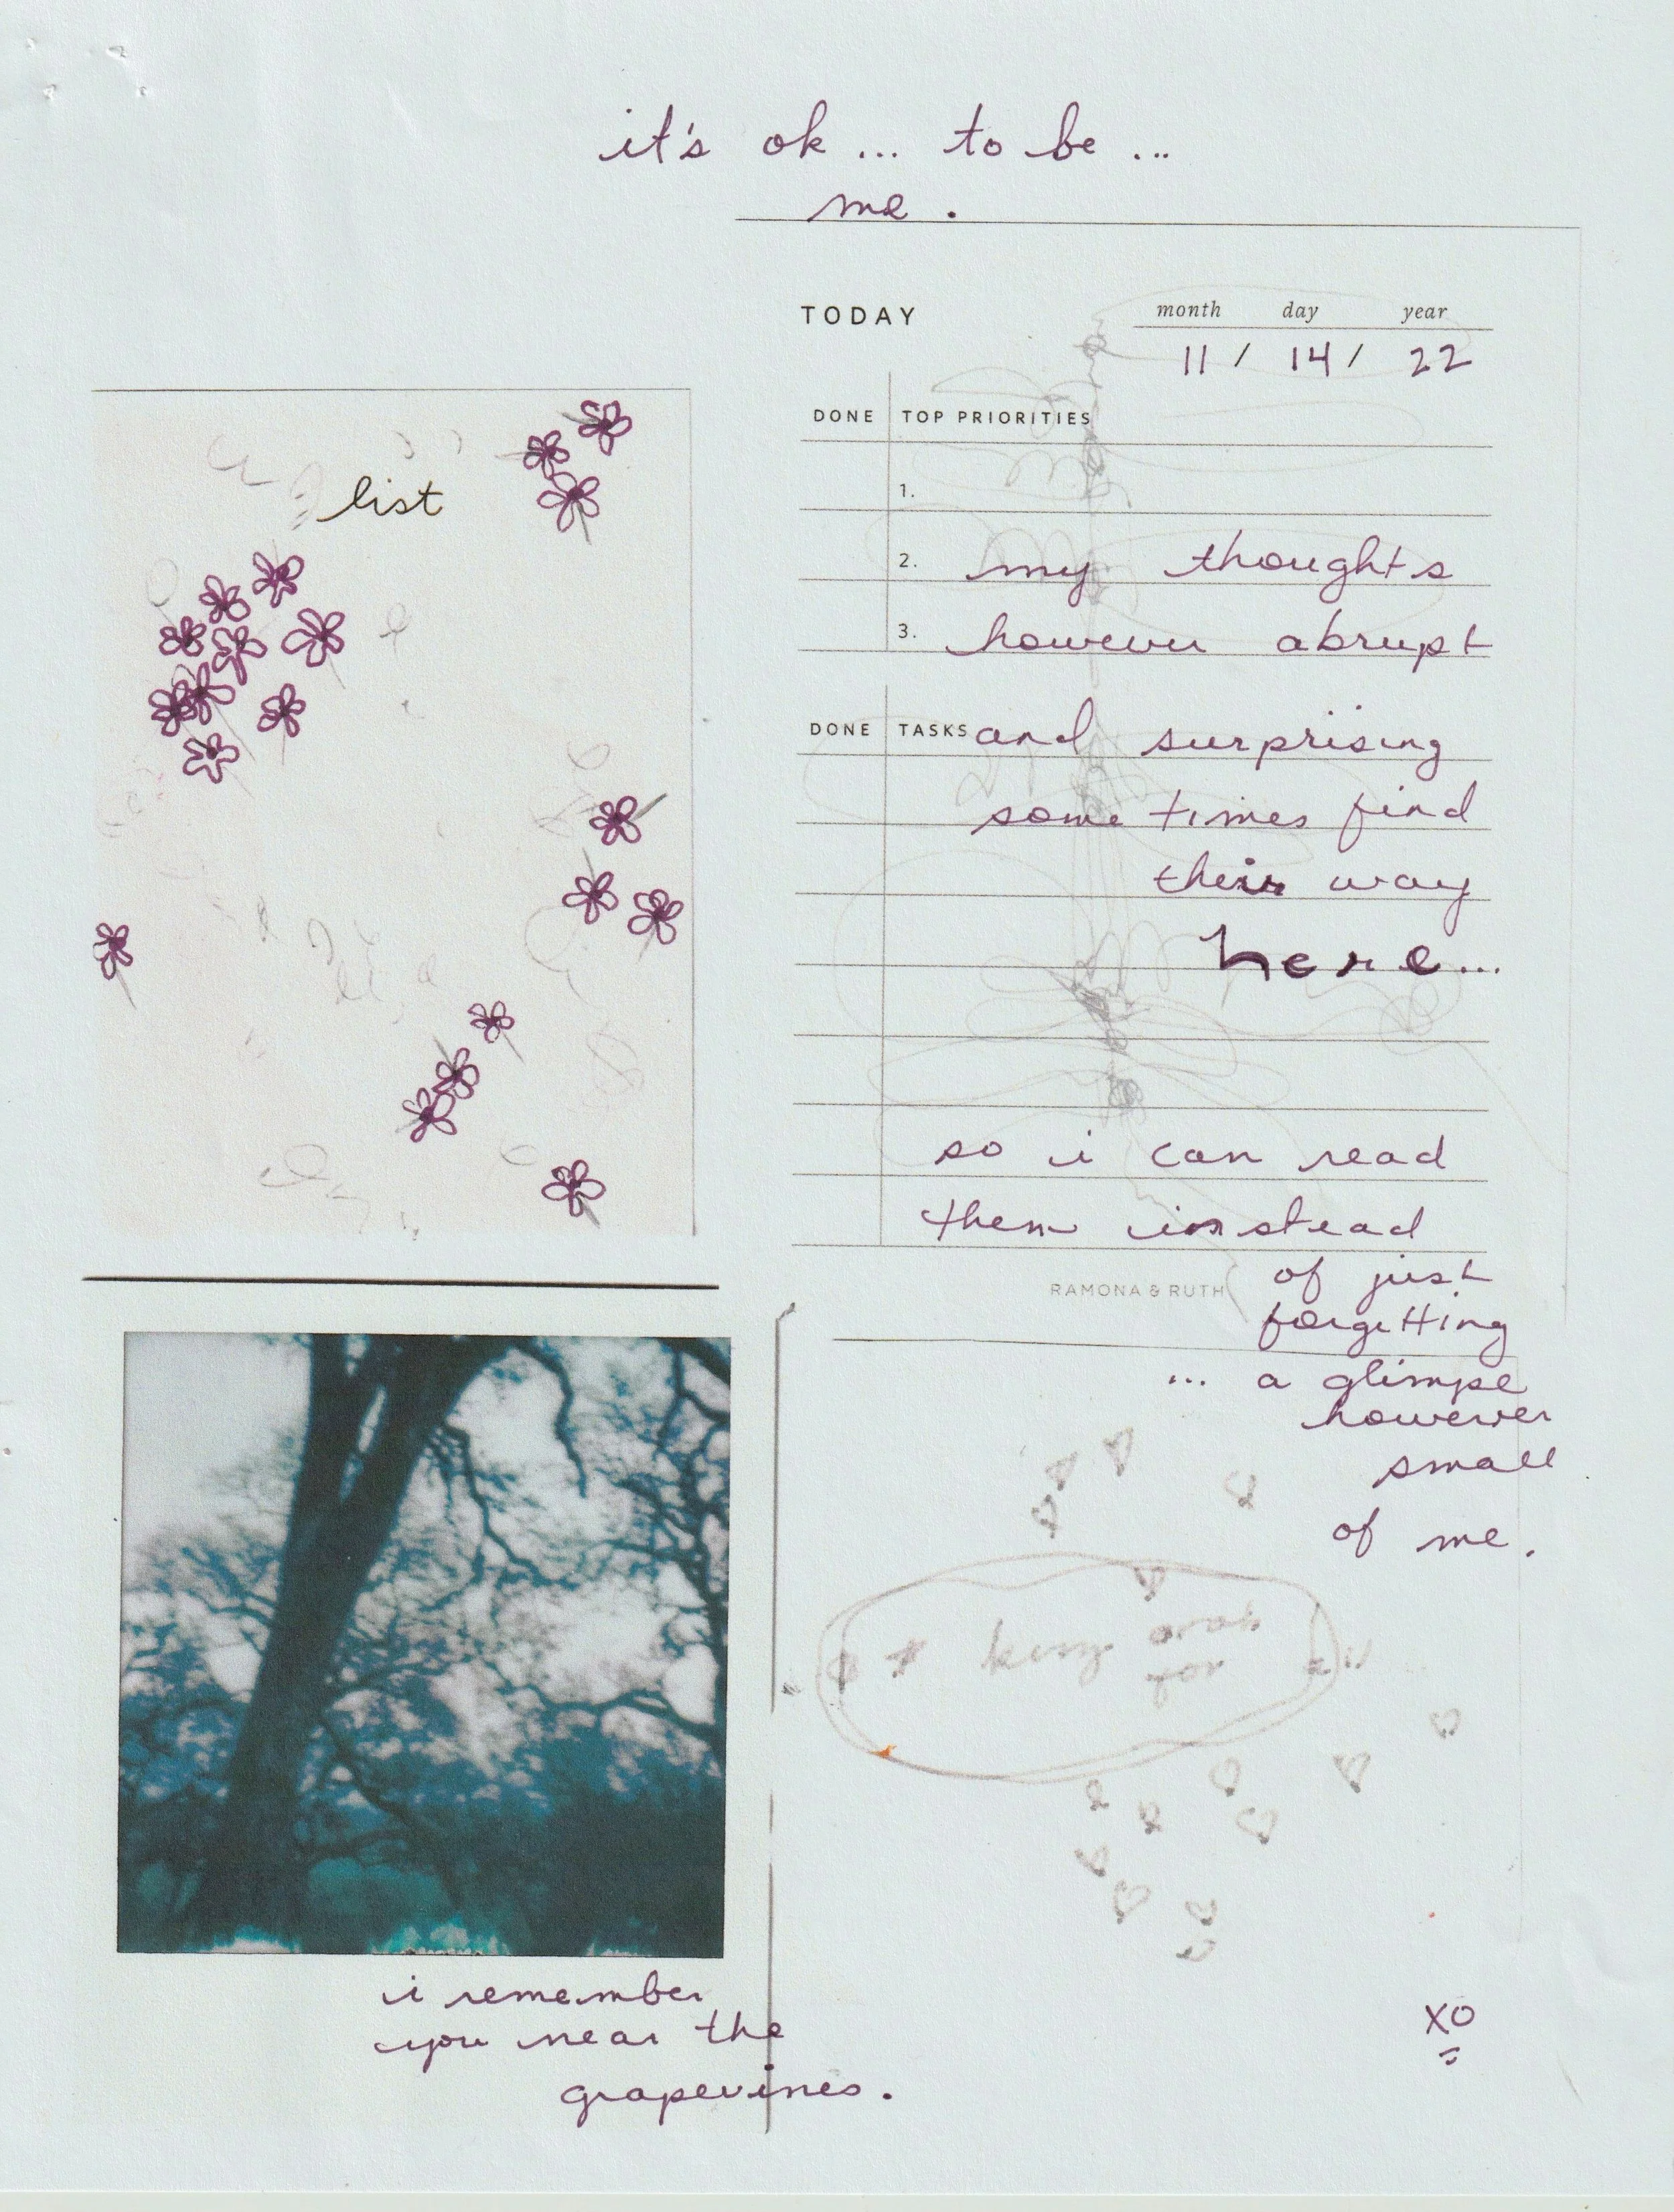 it's ok ... to be ...
me .
TODAY
month day year
11 / 14 / 22
DONE TOP PRIORITIES
1.
2. my thoughts
3. however abrupt
DONE TASKS and surprising
some times find
their way
here...
so i can read
them instead
RAMONA & RUTH of just
forgetting
... a glimpse
however
small
of me.
list
i remember
you near the
grapevines.
xo